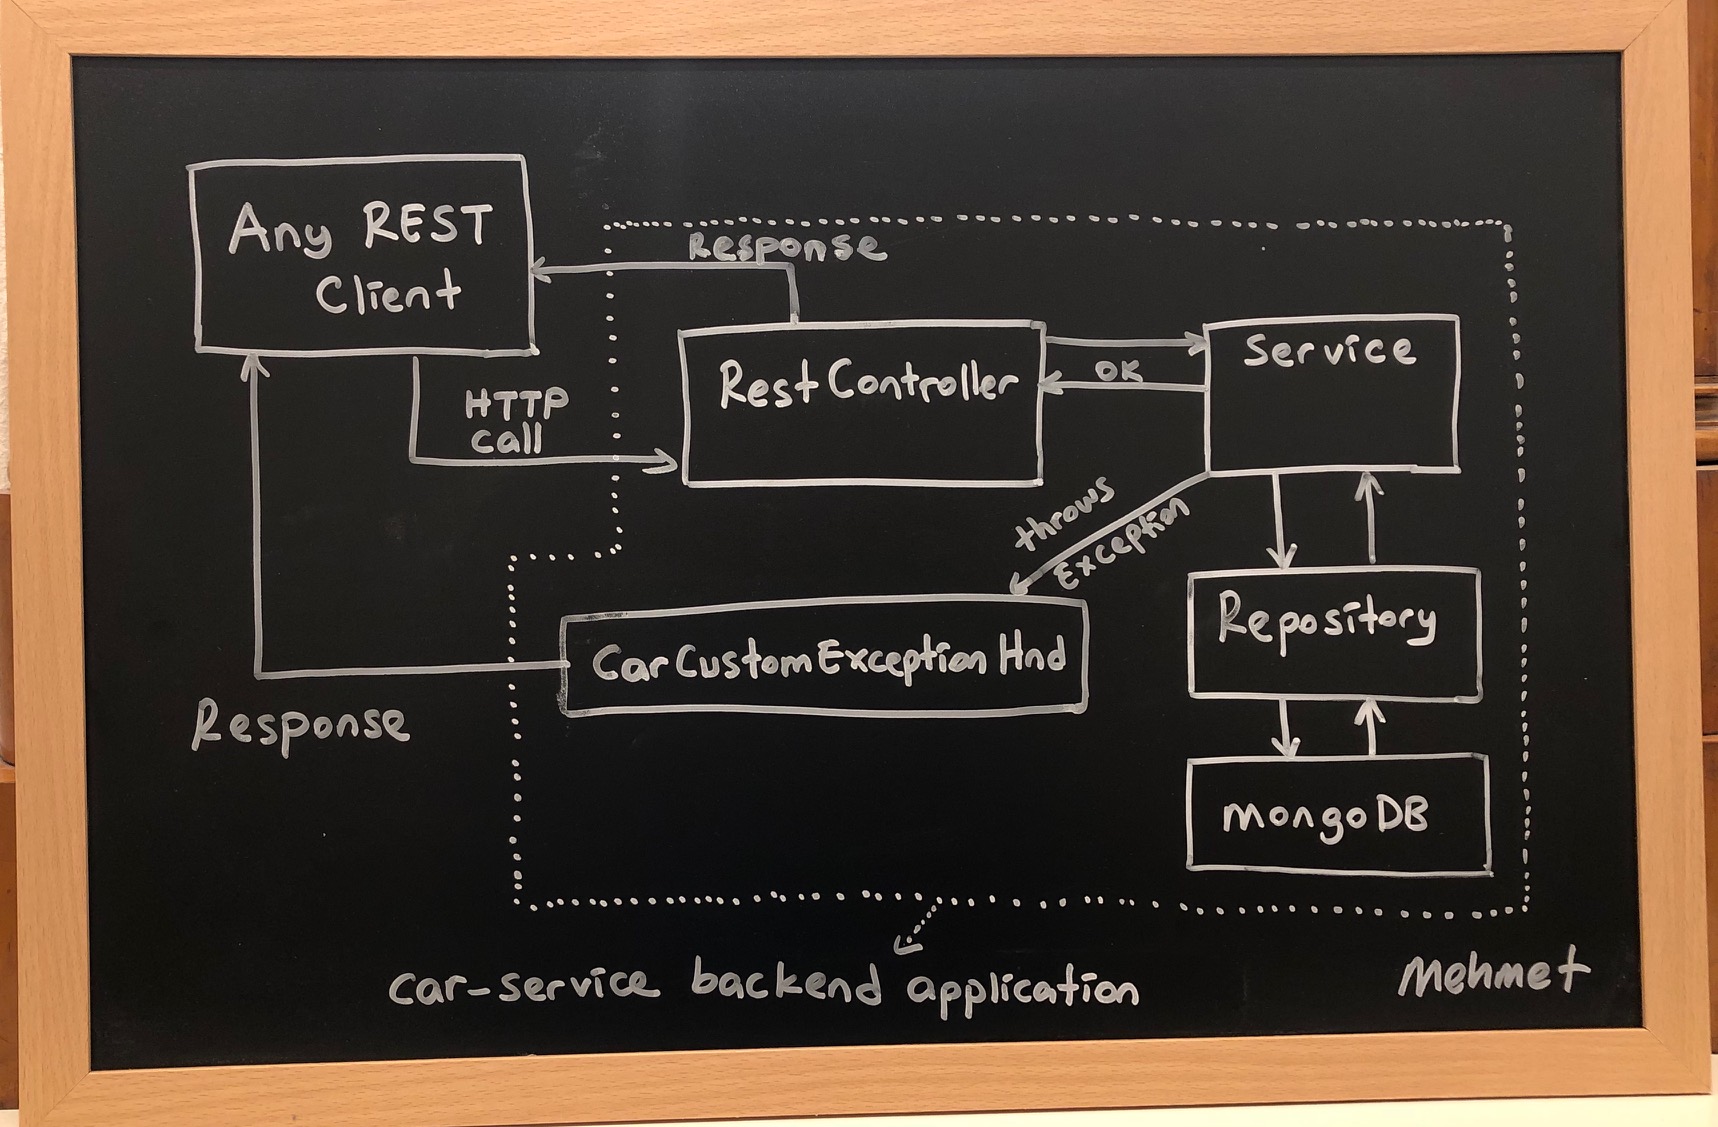 Any REST
Client
Response
HTTP
call
Rest Controller
OK
Service
throws
Exception
Car Custom Exception Hnd
Repository
Response
mongoDB
car-service backend application
Mehmet